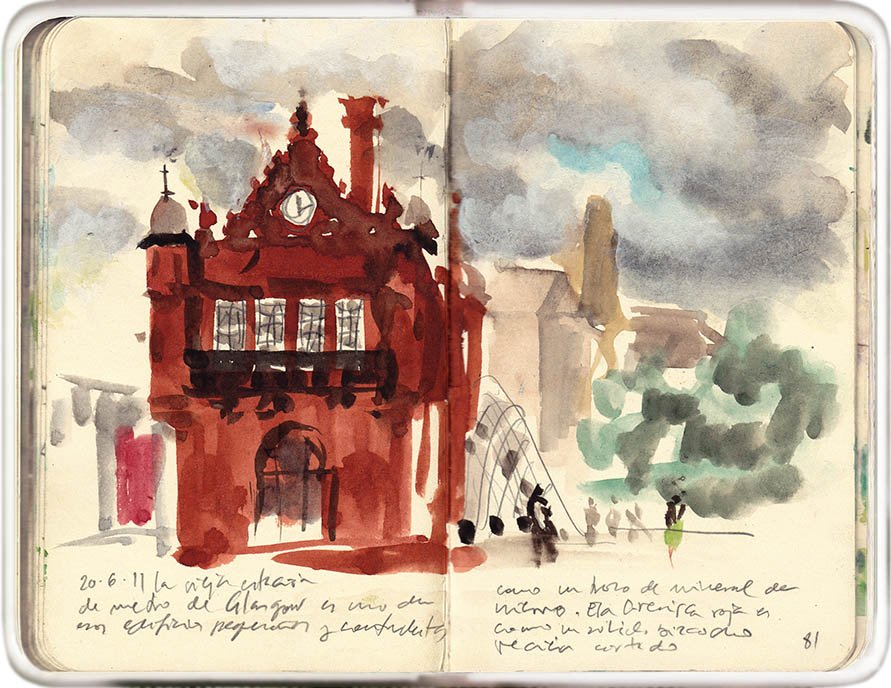 20·6·11 la vieja estación
de metro de Glasgow es uno de
esos edificios pequeños y contundentes
como un trozo de mineral de
mismo. Esta arenisca roja es
como un sólido bizcocho
recién cortado
81